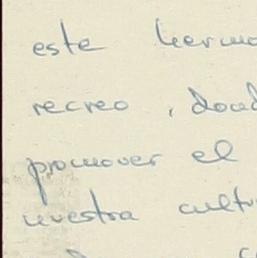 este hermo
recreo, dond
promover el
nuestra cultu